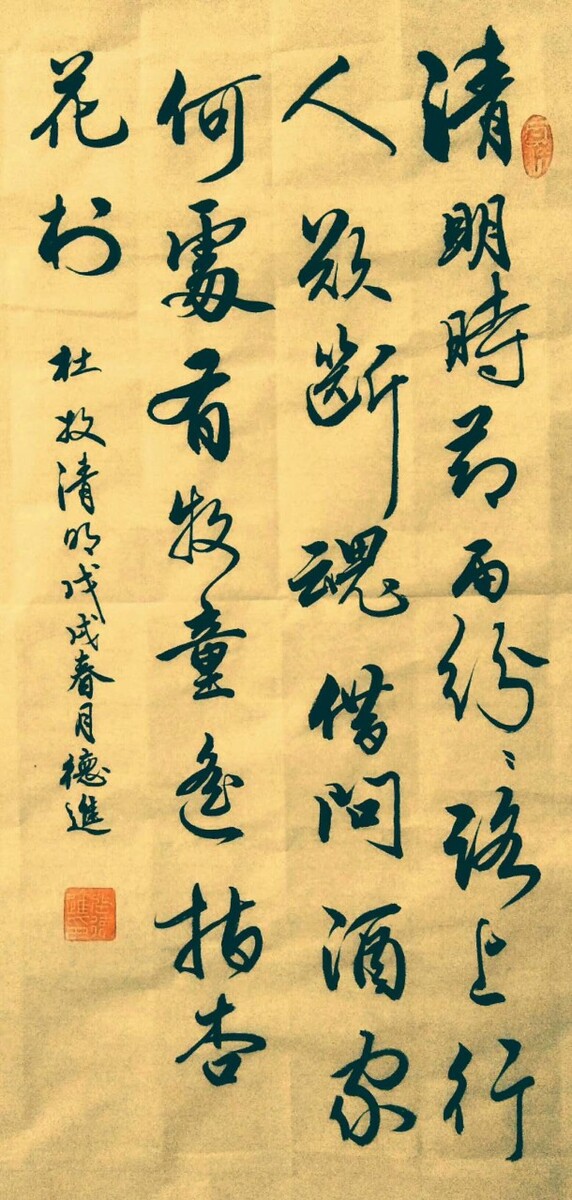 清明時節雨紛〻路上行
人欲斷魂借問酒家
何處有牧童遙指杏
花村
杜牧清明戊戌春月德進